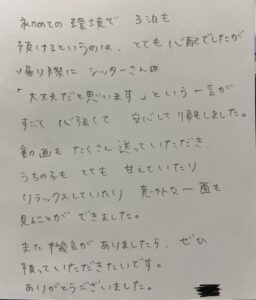 初めての環境で 3泊も
預けるというのは、とても心配でしたが
帰り際に シッターさんの
「大丈夫だと思います」という一言が
すごく 心強くて 安心して帰宅しました。
動画も たくさん送っていただき、
うちの子も とても 甘えていたり
リラックスしていたり 意外な一面も
見ることが できました。
また機会がありましたら、ぜひ
預っていただきたいです。
ありがとうございました。